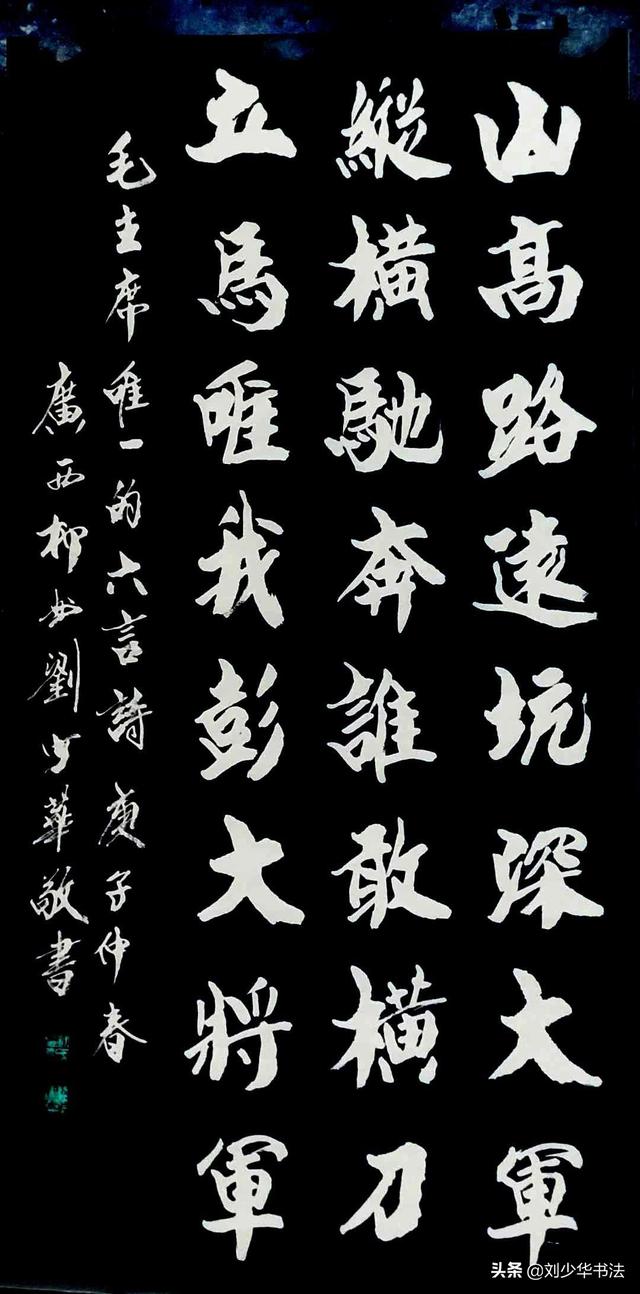 山高路遠坑深大軍
縱横馳奔誰敢横刀
立馬唯我彭大將軍
毛主席唯一的六言詩庚子仲春
廣西柳州劉少華敬書
头条 @刘少华书法